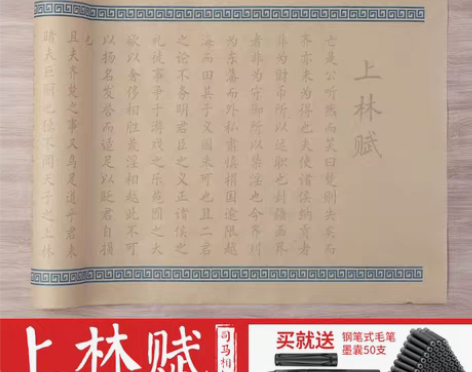 上林赋
亡是公听然而笑曰楚则失矣而
齐亦未为得也夫使诸侯纳贡者
非为财币所以述职也封疆画界
者非为守御所以禁淫也今齐列
为东藩而外私肃慎捐国逾限越
海而田其于义固未可也且二君
之论不务明君臣之义正诸侯之
礼徒事争于游戏之乐苑囿之大
欲以奢侈相胜荒淫相越此不可
以扬名发誉而适足以贬君自损
也
且夫齐楚之事又乌足道乎君未
睹夫巨丽也独不闻天子之上林
上林赋
司马相
买就送
钢笔式毛笔
墨囊50支